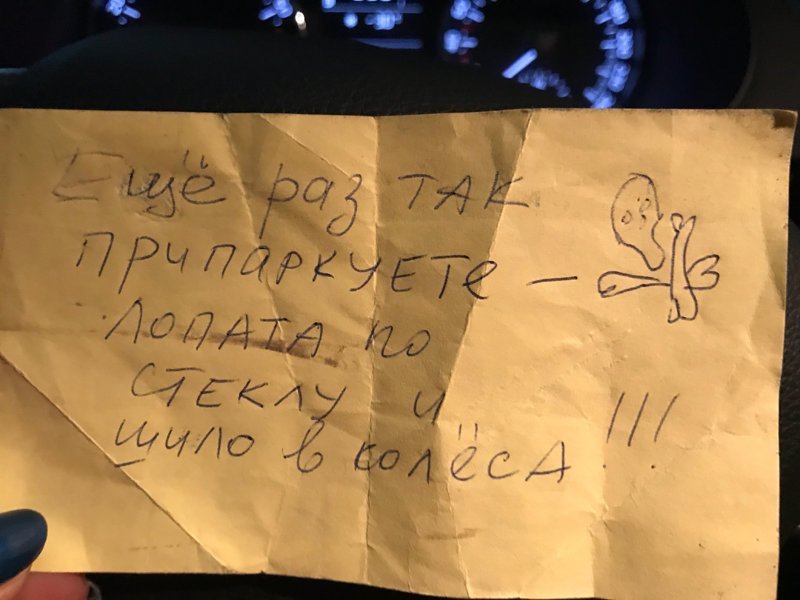 Ещё раз ТАК
ПРИПАРКУЕТЕ –
ЛОПАТА ПО
СТЕКЛУ И
шило в колёсА!!!